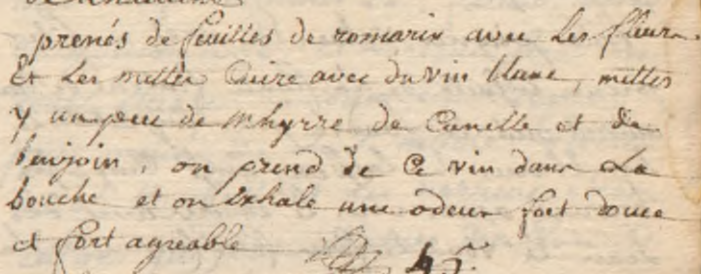 prenés de feuilles de romarin avec les fleurs
Et les mettes Cuire avec du vin blanc, mettes
y un peu de mhyrre de Canelle et de
benjoin, on prend de Ce vin dans La
bouche et on Exhale une odeur fort douce
et fort agreable